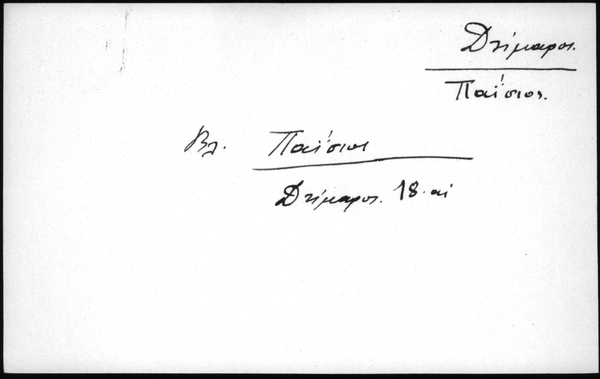 Δήμαρος.
Παΐσιος.
Βλ. Παΐσιος
Δήμαρος. 18 αἰ